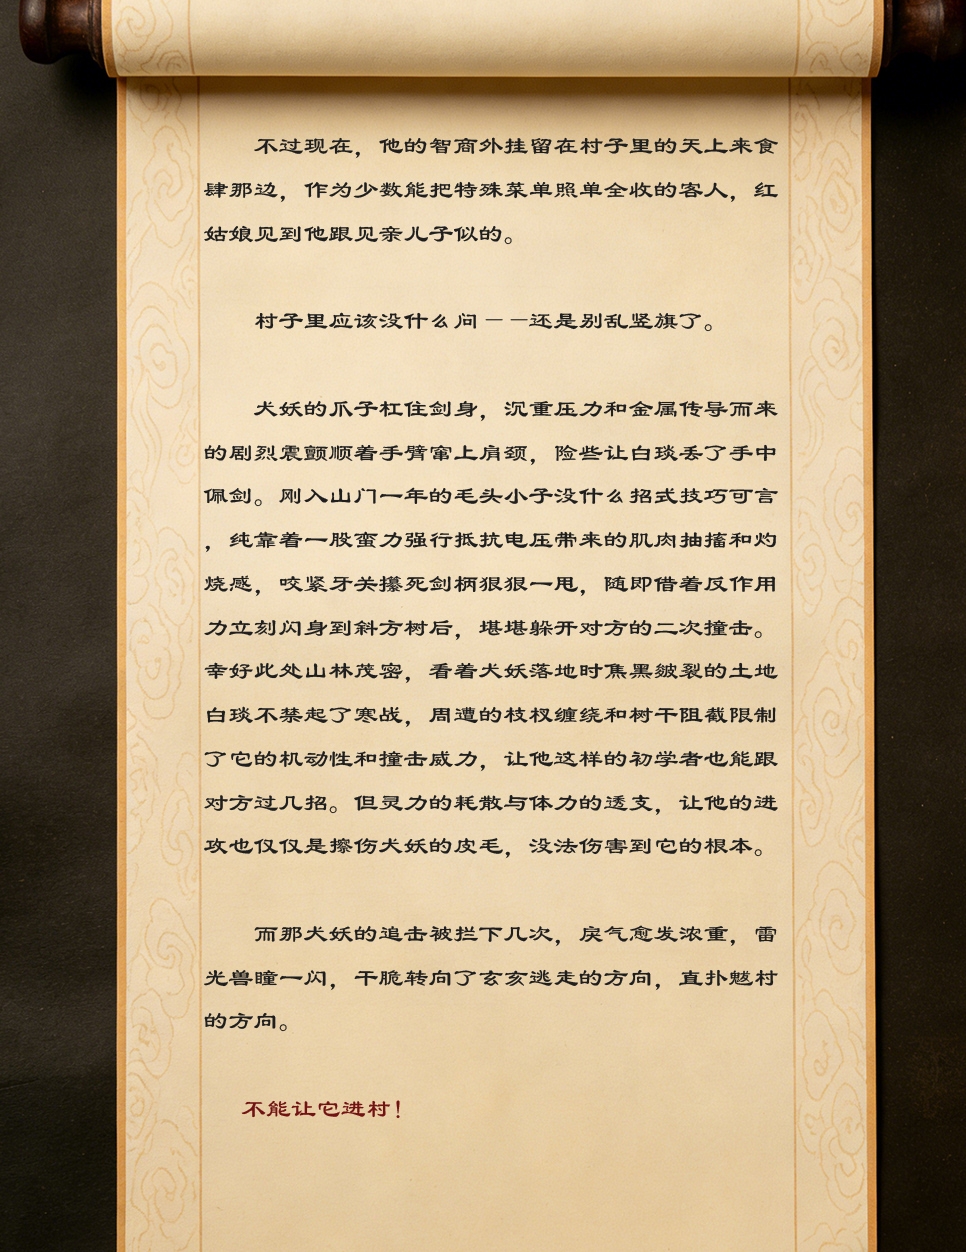 不过现在，他的智商外挂留在村子里的天上来食
肆那边，作为少数能把特殊菜单照单全收的客人，红
姑娘见到他跟见亲儿子似的。
村子里应该没什么问——还是别乱竖旗了。
犬妖的爪子杠住剑身，沉重压力和金属传导而来
的剧烈震颤顺着手臂窜上肩颈，险些让白琰丢了手中
佩剑。刚入山门一年的毛头小子没什么招式技巧可言
，纯靠着一股蛮力强行抵抗电压带来的肌肉抽搐和灼
烧感，咬紧牙关攥死剑柄狠狠一甩，随即借着反作用
力立刻闪身到斜方树后，堪堪躲开对方的二次撞击。
幸好此处山林茂密，看着犬妖落地时焦黑皴裂的土地
白琰不禁起了寒战，周遭的枝杈缠绕和树干阻截限制
了它的机动性和撞击威力，让他这样的初学者也能跟
对方过几招。但灵力的耗散与体力的透支，让他的进
攻也仅仅是擦伤犬妖的皮毛，没法伤害到它的根本。
而那犬妖的追击被拦下几次，戾气愈发浓重，雷
光兽瞳一闪，干脆转向了玄亥逃走的方向，直扑魃村
的方向。
不能让它进村！